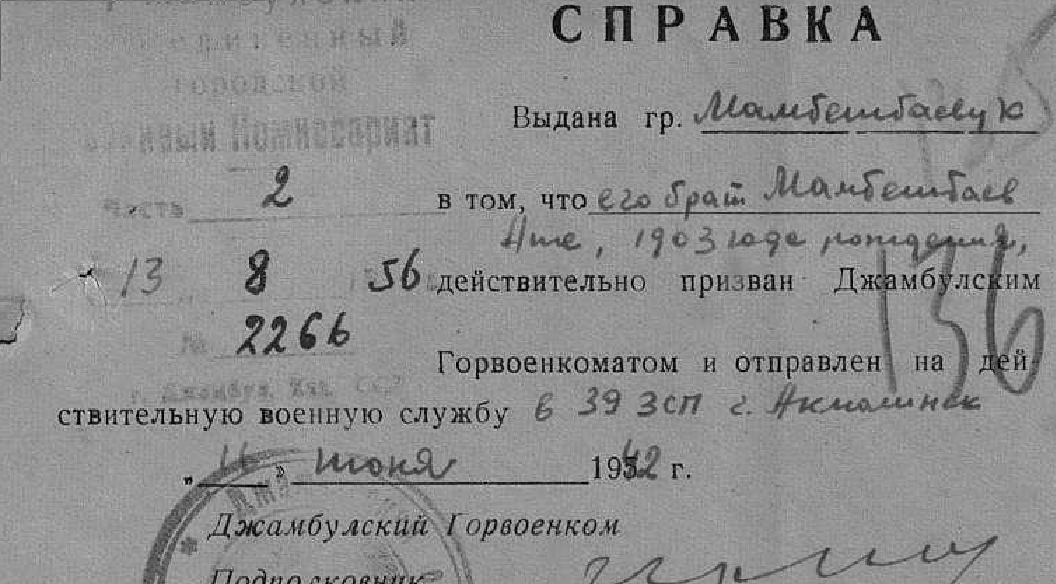 СПРАВКА
единенный
городской
Комиссариат
Выдана гр. Мамбетбаеву К
Часть 2
в том, что его брат Мамбетбаев
Аше, 1903 года рождения,
13 8 56
действительно призван Джамбулским
136
№ 2266
Горвоенкоматом и отправлен на дей-
г. Джамбул, Каз. ССР
ствительную военную службу в 39 ЗСП г. Акмолинск
„16" июня 1942 г.
Джамбулский Горвоенком
Подполковник